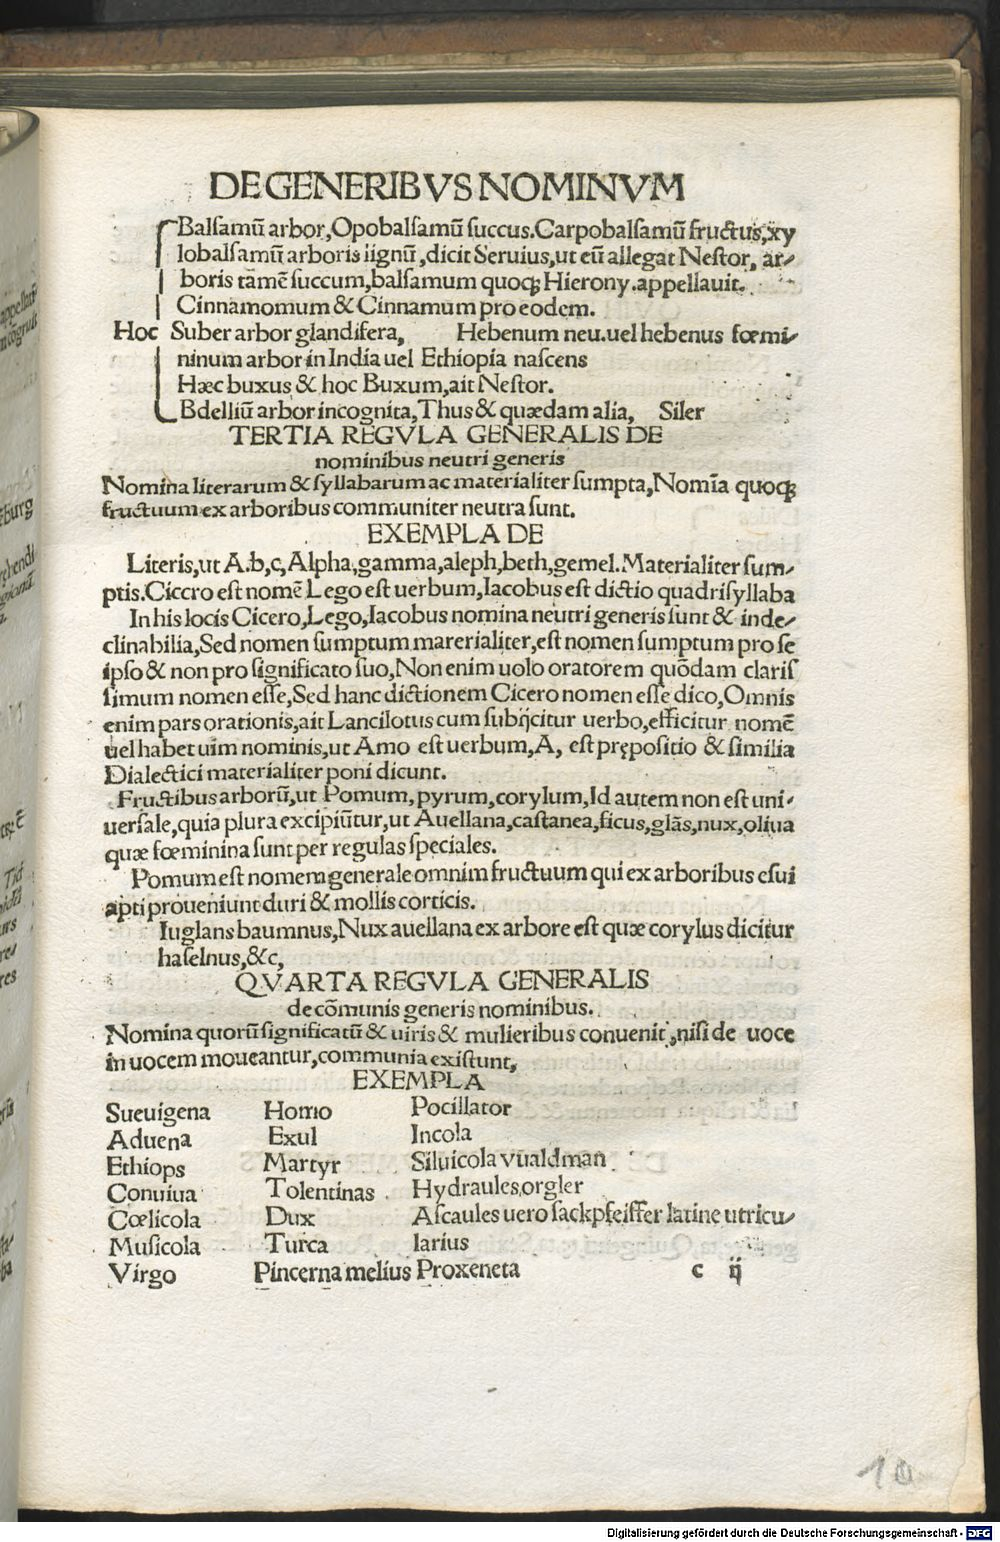 DE GENERIBVS NOMINVM
Balsamũ arbor, Opobalsamũ succus. Carpobalsamũ fructus, xy
lobalsamũ arboris lignũ, dicit Seruius, ut eũ allegat Nestor, ar-
boris tamẽ succum, balsamum quoqꝫ Hierony. appellauit.
Cinnamomum & Cinnamum pro eodem.
Hoc Suber arbor glandifera, Hebenum neu. uel hebenus fœmi-
ninum arbor in India uel Ethiopia nascens
Hæc buxus & hoc Buxum, ait Nestor.
Bdelliũ arbor incognita, Thus & quædam alia, Siler
TERTIA REGVLA GENERALIS DE
nominibus neutri generis
Nomina literarum & syllabarum ac materialiter sumpta, Nomĩa quoqꝫ
fructuum ex arboribus communiter neutra sunt.
EXEMPLA DE
Literis, ut A. b, c, Alpha, gamma, aleph, beth, gemel. Materialiter sum-
ptis. Ciccro est nomẽ Lego est uerbum, Iacobus est dictio quadrisyllaba
In his locis Cicero, Lego, Iacobus nomina neutri generis sunt & inde-
clinabilia, Sed nomen sumptum marerialiter, est nomen sumptum pro se
ipso & non pro significato suo, Non enim uolo oratorem quõdam claris
simum nomen esse, Sed hanc dictionem Cicero nomen esse dico, Omnis
enim pars orationis, ait Lancilotus cum subijcitur uerbo, efficitur nomẽ
uel habet uim nominis, ut Amo est uerbum, A, est prępositio & similia
Dialectici materialiter poni dicunt.
Fructibus arborũ, ut Pomum, pyrum, corylum, Id autem non est uni-
uersale, quia plura excipiũtur, ut Auellana, castanea, ficus, glãs, nux, oliua
quæ fœminina sunt per regulas speciales.
Pomum est nomem generale omnim fructuum qui ex arboribus esui
apti proueniunt duri & mollis corticis.
Iuglans baumnus, Nux auellana ex arbore est quæ corylus dicitur
haselnus, &c,
QVARTA REGVLA GENERALIS
de cõmunis generis nominibus.
Nomina quorũ significatũ & uiris & mulieribus conuenit, nisi de uoce
in uocem moueantur, communia existunt,
EXEMPLA
Sueuigena Homo Pocillator
Aduena Exul Incola
Ethiops Martyr Siluicola vũaldman
Conuiua Tolentinas Hydraules, orgler
Cœlicola Dux Ascaules uero sackpfeiffer latine utricu-
Musicola Turca larius
Virgo Pincerna melius Proxeneta c ij
10
Digitalisierung gefördert durch die Deutsche Forschungsgemeinschaft - DFG